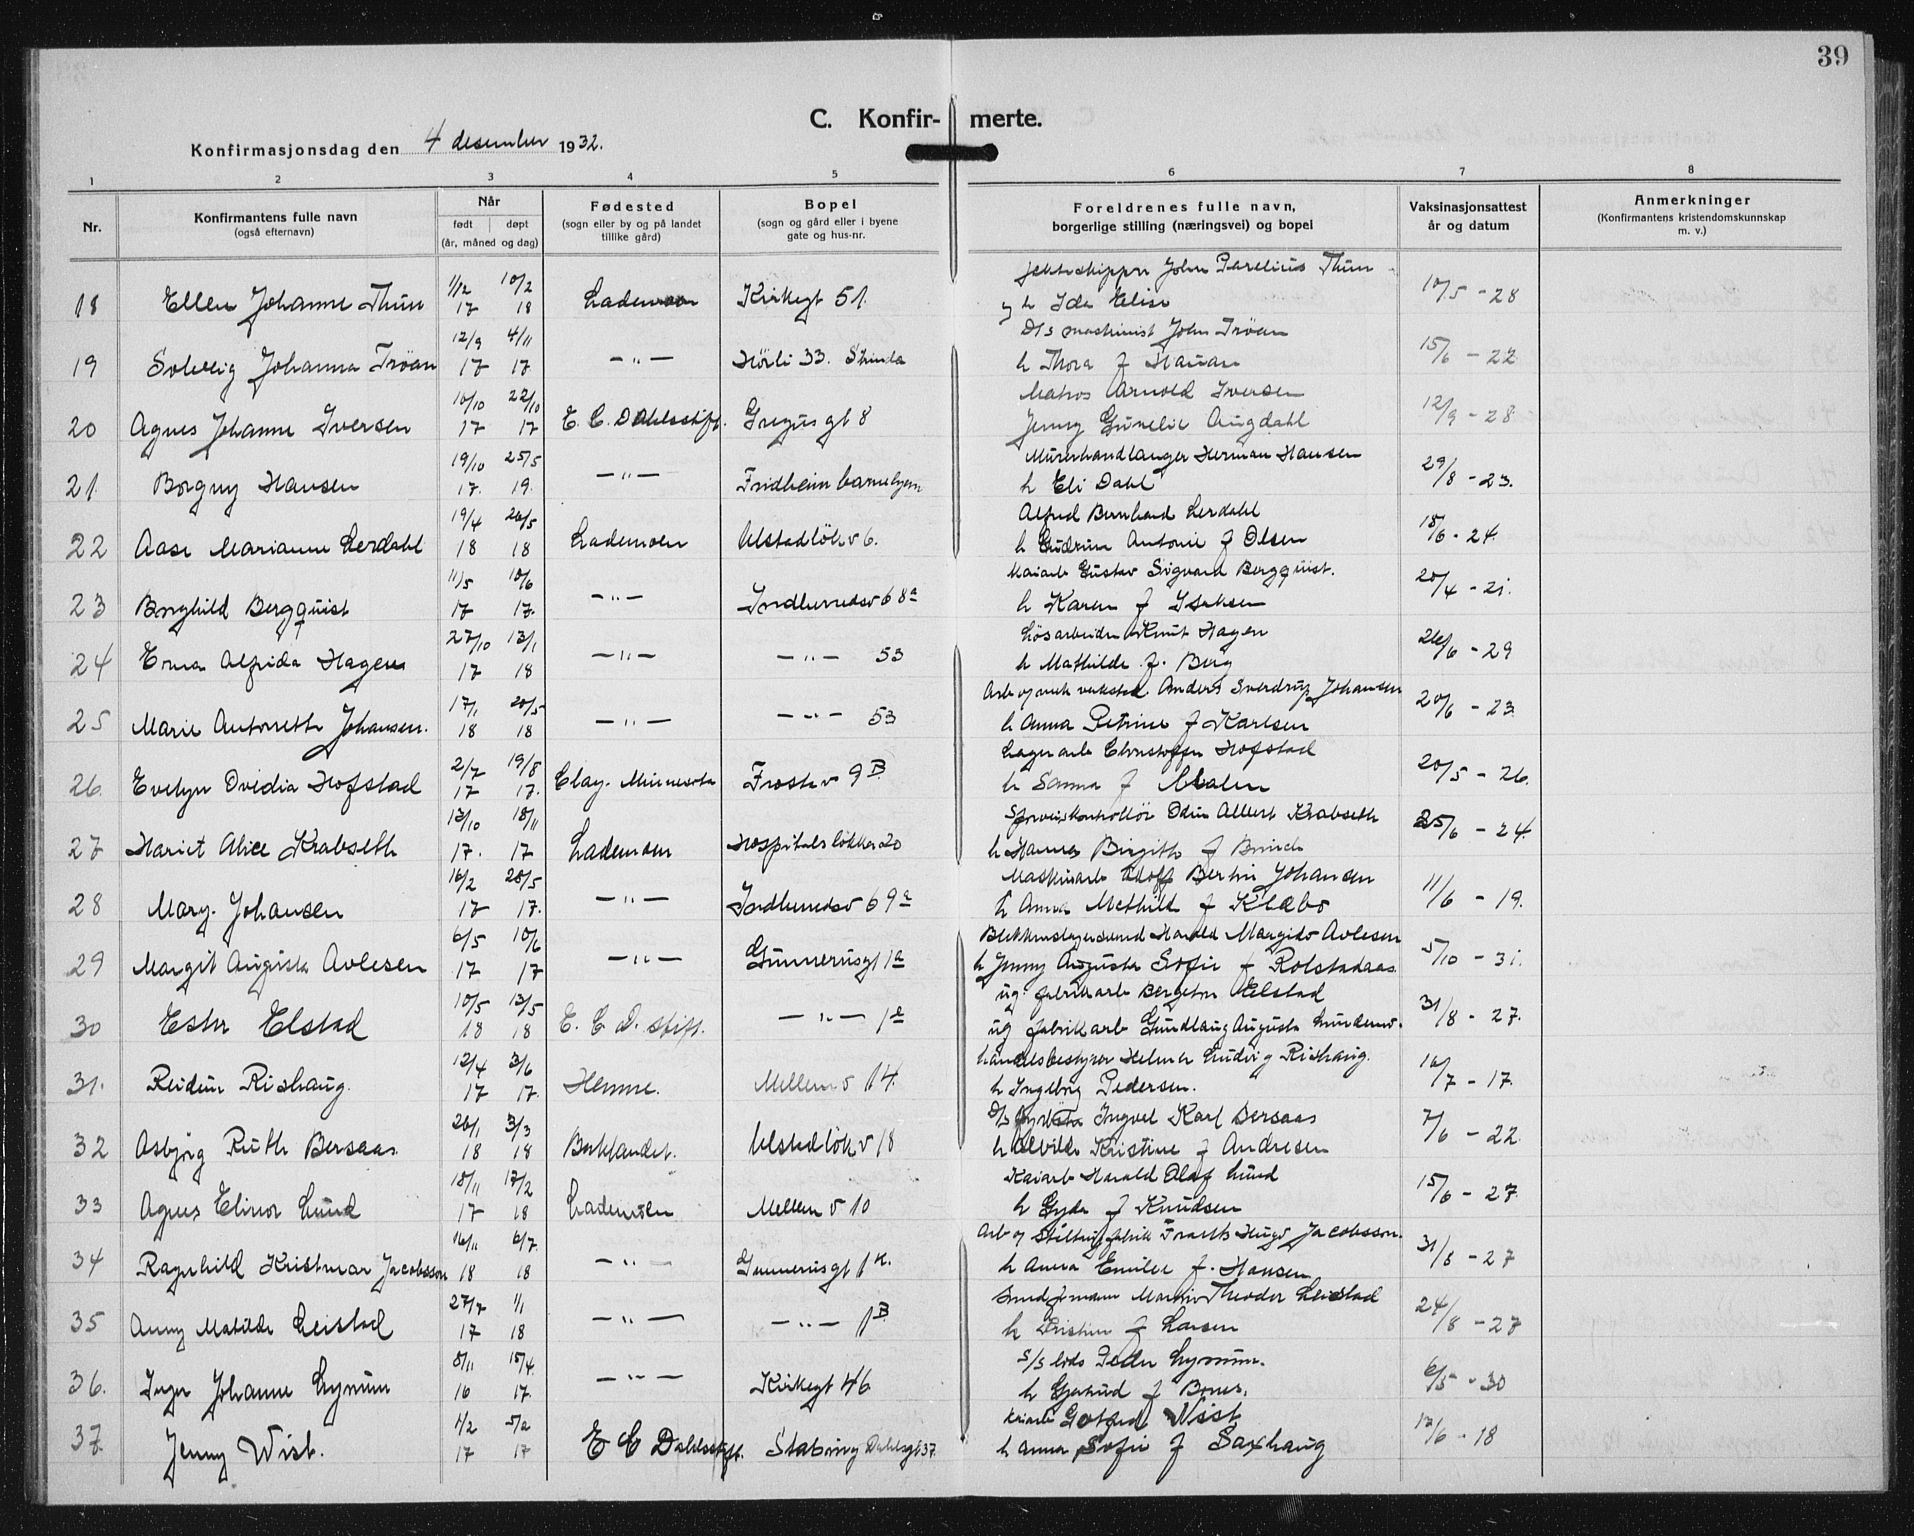 39
C. Konfir- merte.
Konfirmasjonsdag den 4 desember 1932.
1 2 3 4 5 6 7 8
Nr. Konfirmantens fulle navn (også efternavn) Når født døpt (år, måned og dag) Fødested (sogn eller by og på landet tillike gård) Bopel (sogn og gård eller i byene gate og hus-nr. Foreldrenes fulle navn, borgerlige stilling (næringsvei) og bopel Vaksinasjonsattest år og datum Anmerkninger (Konfirmantens kristendomskunnskap m. v.)
1/12 10/2 John Parelius Thun
18 Ellen Johanne Thun 17 18 Lademoen Kirkegt 51. h Ida Elise 10/5 - 28
12/9 4/11 D/s maskinist John Tröan
19 Solveig Johanna Tröan 17 17 -"- Hörli 33. Strinda h Thora f Hanan 15/6 - 22
10/10 22/10 Matros Arnold Iversen
20 Agnes Johanne Iversen 17 17 E. C. Dahlsstift. Gregus gt 8 Jenny Gunelie Augdahl 12/9 - 28
19/10 25/5 Murerhandlanger Herman Hansen
21. Borgny Hansen 17. 19. -"- Fridheim barnehjem h Eli Dahl 29/8 - 23.
19/4 26/5 Alfred Bernhard Lerdahl
22 Aase Marianne Lerdahl 18 18 Lademoen Ulstadlökv 6. h Gudrun Antonie f Olsen 18/6 - 24.
11/5 10/6 Kaiarb Gustav Sigvard Bergquist.
23 Borghild Bergquist 17 17. -"- Indherredsv 68a h Karen f Isaksen 20/4 - 21.
27/10 13/1 Lösarbeider Knut Hagen
24 Erna Alfrida Hagen 17 18 -"- -"- 53 h Mathilde f. Berg 26/6 - 29
17/1 20/5 Arb og mek verksted Anders Sverdrup Johansen
25 Marie Antonette Johansen. 18 18 -"- -"- 53 h Anna Petrine f Karlsen 20/6 - 23
2/7 19/8 Lagerarb Christoffer Hofstad
26. Evelyn Ovidia Hofstad 17 17. Clay. Minnesota Frostav 9B. h Sanna f Malen 20/5 - 26.
13/10 18/11 Sporveiskontrollör Odin Albert Krabseth
27 Hariet Alice Krabseth 17. 17 Lademoen Hospitalslökka 20 h Hanna Birgitte f 25/6 - 24.
16/2 28/5 Maskinarb Adolf Bertin Johansen
28 Mary. Johansen 17 17. -"- Indherredsv 69a h Anna Methild f Klæbo 11/6 - 19.
6/5 10/6 Blikkenslagersvend Harald Margido Avlesen
29 Margit Augusta Avlesen 17 17 -"- Gunnerusgt 1a h Jenny Augusta Sofie f Rolstadaas 5/10 - 31.
10/5 13/5 ug. fabrikarb Bergeton Elstad
30 Ester Elstad 18 18 E. C. D. stift. -"- 1e ug fabrikarb Gundlaug Augusta 31/8 - 27.
12/4 3/6 handelsbestyrer Helmer Ludvig Rishaug.
31. Reidun Rishaug. 17 17. Hemne. Mellemv 14. h Ingeborg Pedersen. 16/7 - 17.
26/1 3/3 D/s fyrböter Ingvel Karl Bersaas
32 Asbjörg Ruth Bersaas 18 18 Baklandet. Ulstadlökv 18 h Alvilde Kristine f Andresen 7/6 - 22.
18/11 17/2 Kaiarb Harald Olaf Lund
33 Agnes Elinor Lund 17 18 Lademoen Mellemv 10 h Gyda f Knudsen 15/6 - 27
16/11 6/7 Arb og fabrik Hugo Jacobsson.
34 Ragnhild Kristmar Jacobsson 18 18 -"- Gunnerusgt 1 h Anna Emilie f. Hansen 31/8 - 27
27/7 1/1 Martin Theodor Leistad
35 Anny Matilde Leistad 17 18 -"- -"- 1B h Kristine f Larsen 24/8 - 27
8/11 15/4. S/S lods Peder Lynum.
36. Inger Johanne Lynum 16 17. -"- Kirkegt 46 h Gjertrud f Bones. 6/5 - 30
4/2 5/2 Kaiarb Gotfred Wist
37. Jenny Wist. 17 17 E C Dahlsstift. Stabsing Dahlsgt 37. h Anna Sofie f Saxhaug 17/6 - 18